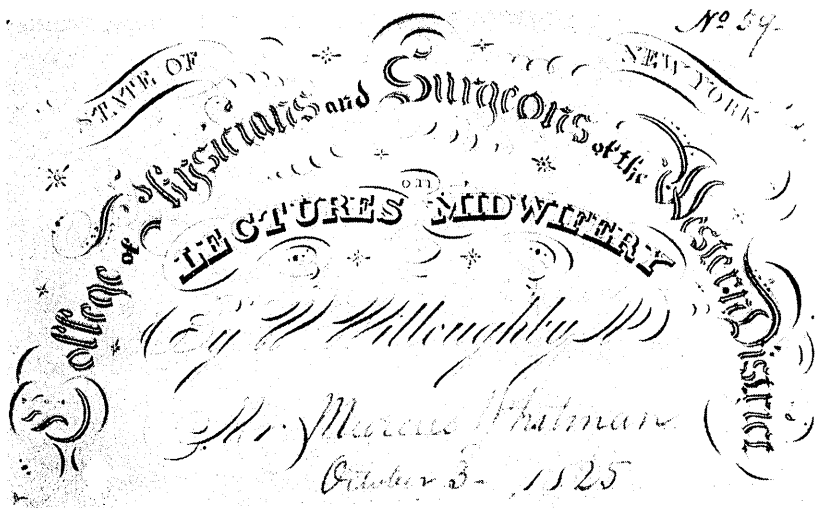 No 59
STATE OF NEW YORK
College of Physicians and Surgeons of the Western District
LECTURES on MIDWIFERY
By W Willoughby M D
Mr. Marcus Whitman
October 3 - 1825